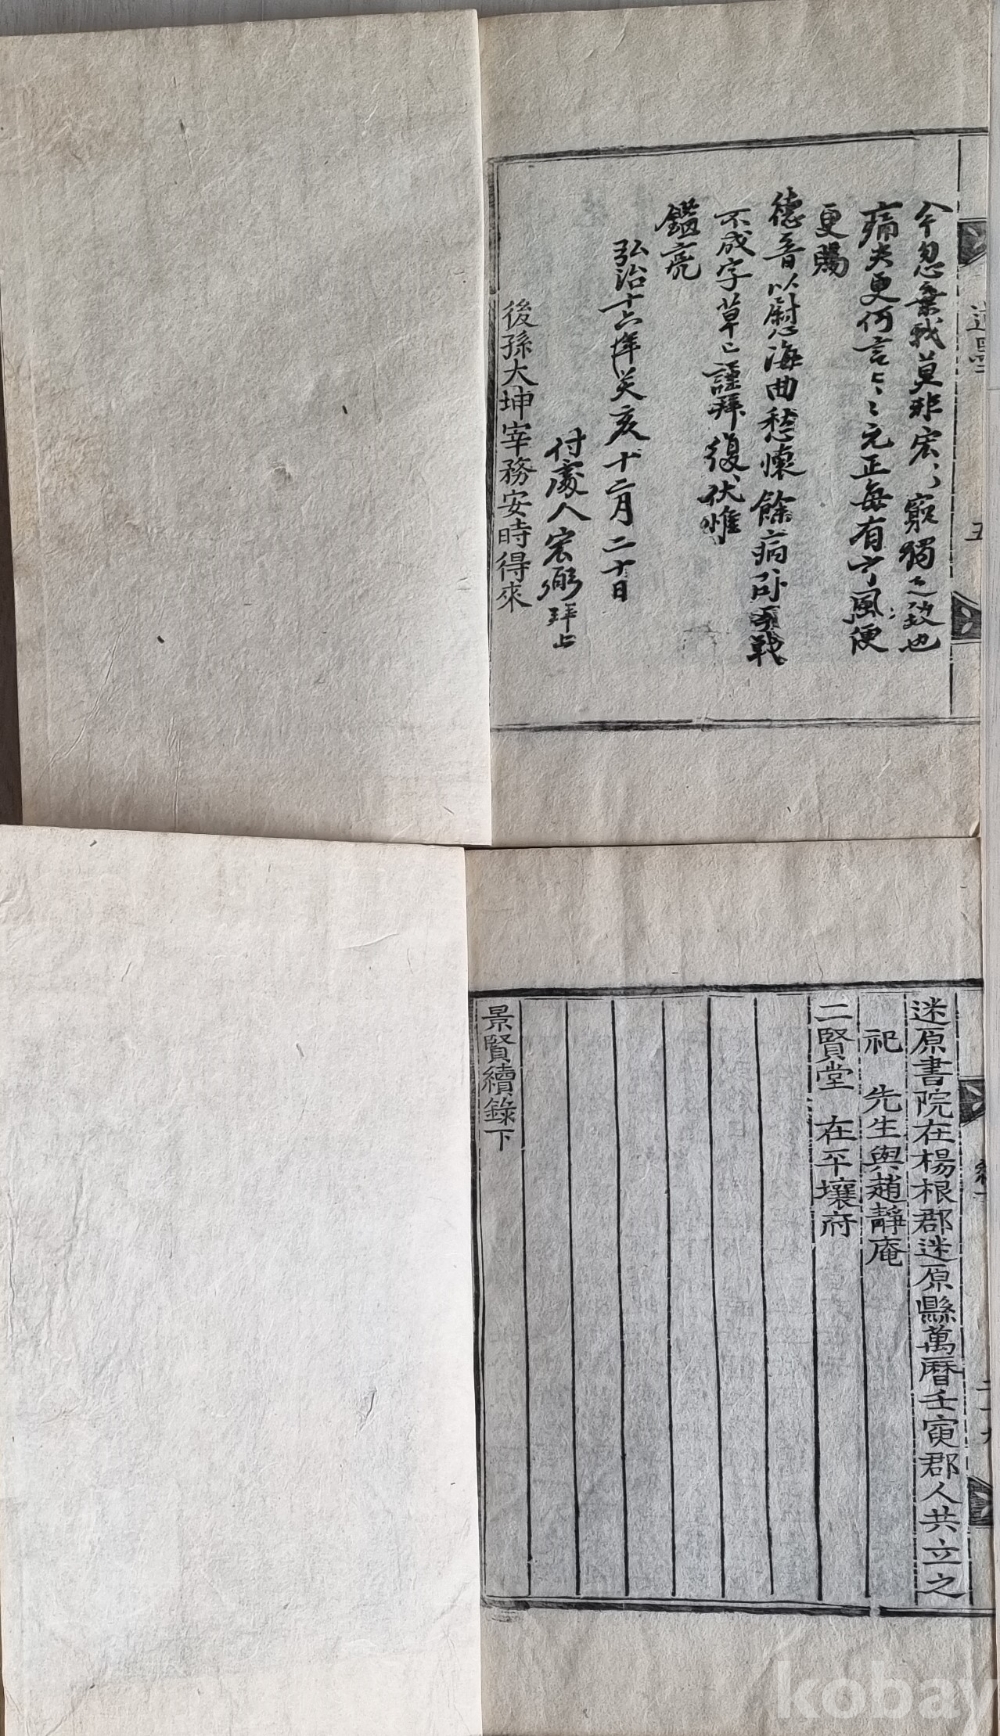 今忽棄我莫非宏〻窮獨之致也
痛矣更何言〻〻元正每有亨風便
更賜
德音以慰海曲愁懷餘病臥戰
不成字草〻謹拜復伏惟
鑑亮
弘治十六年癸亥十二月二十日
付處人宏弼拜上
後孫大坤宰務安時得來
遺墨
五
迷原書院在楊根郡迷原縣萬曆壬寅郡人共立之
祀 先生與趙靜庵
二賢堂 在平壤府
景賢續錄下
kobay